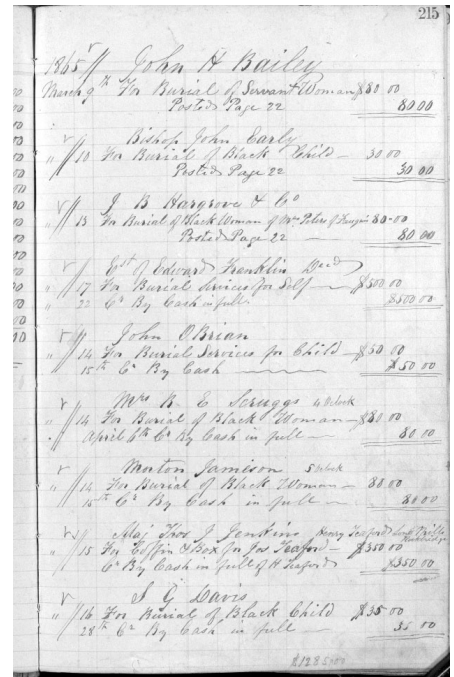 215
1865 John H Bailey
March 9th For Burial of Servant Woman $80 00
Posted Page 22 80 00
Bishop John Early
" 10 For Burial of Black Child — 30 00
Posted Page 22 30 00
J B Hargrove & Co
" 13 For Burial of Black Woman of 80 00
Posted Page 22 — 80 00
Est of Edward Franklin Decd
" 17 For Burial Services for Self — $500 00
" 22 Cr By Cash in full $500 00
John O'Brian
" 14 For Burial Services for Child — $50 00
15th Cr By Cash — $50 00
Mrs R E Scruggs 4 Oclock
" 14 For Burial of Black Woman — $80 00
" April 6th Cr By Cash in full — 80 00
Morton Jamieson 5 Oclock
" 14 For Burial of Black Woman — 80 00
15th Cr By Cash in full — 80 00
Maj Thos J Jenkins Henry Teaford
" 15 For Coffin & Box for Jos Teaford — $350 00
Cr By Cash in full of H Teaford $350 00
S G Davis
" 16 For Burial of Black Child $35 00
28th Cr By Cash in full — 35 00
$1285 00